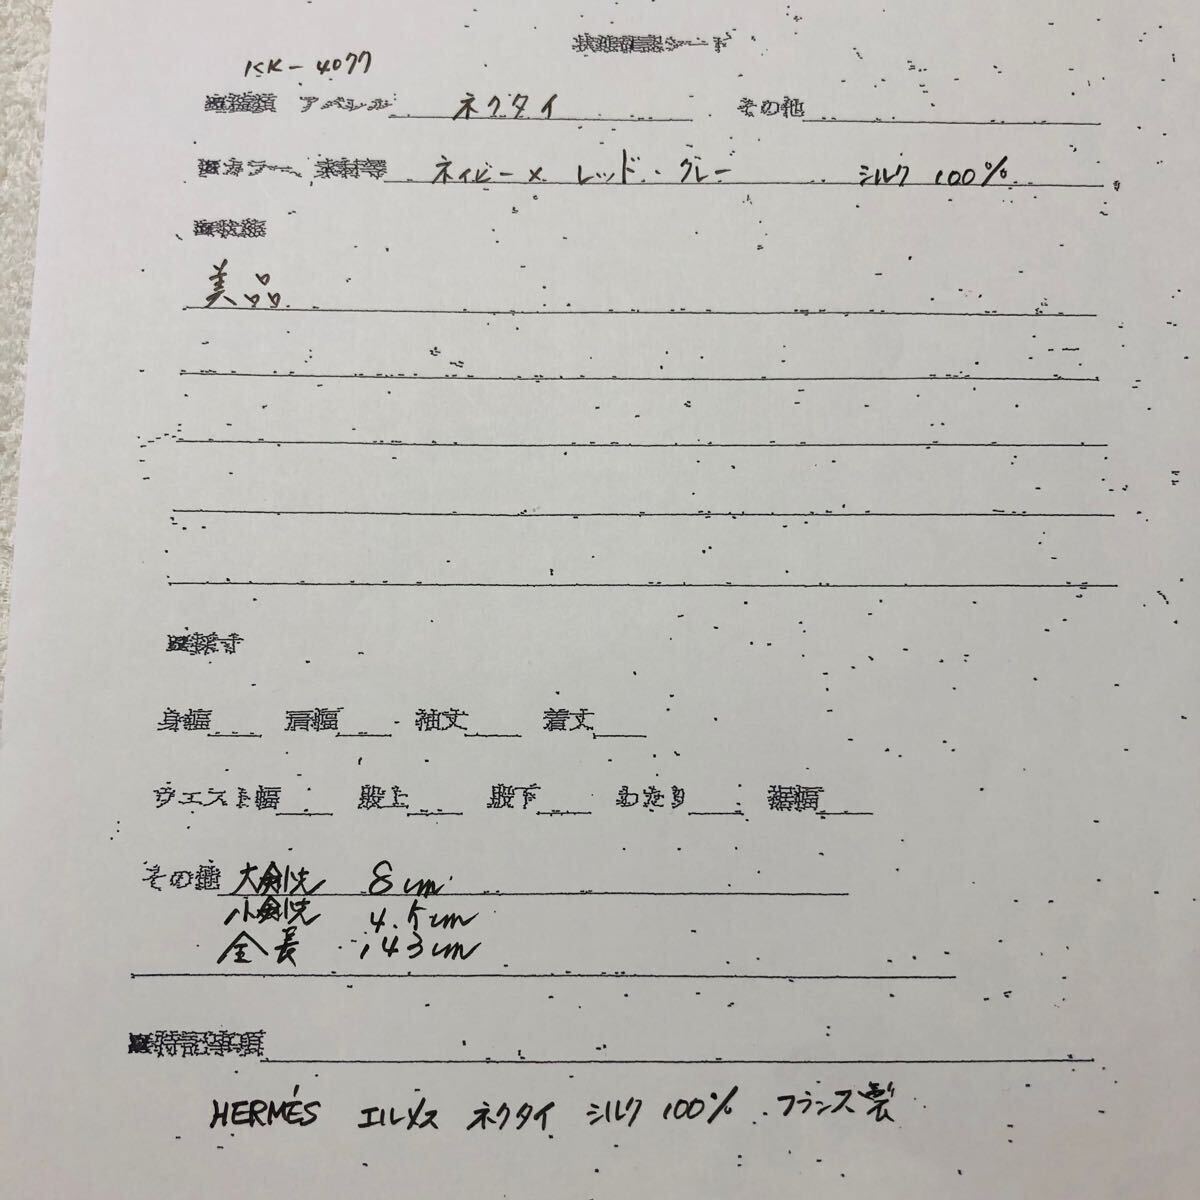 状態確認シート
KK-4077
■種類 アパレル ネクタイ その他
■カラー、素材等 ネイビー× レッド・グレー シルク 100%
■状態
美品
■採寸
身幅 肩幅 袖丈 着丈
ウエスト幅 股上 股下 わたり 裾幅
その他 大剣先 8cm
小剣先 4.5cm
全長 143cm
■特記事項
HERMÉS エルメス ネクタイ シルク 100% フランス製